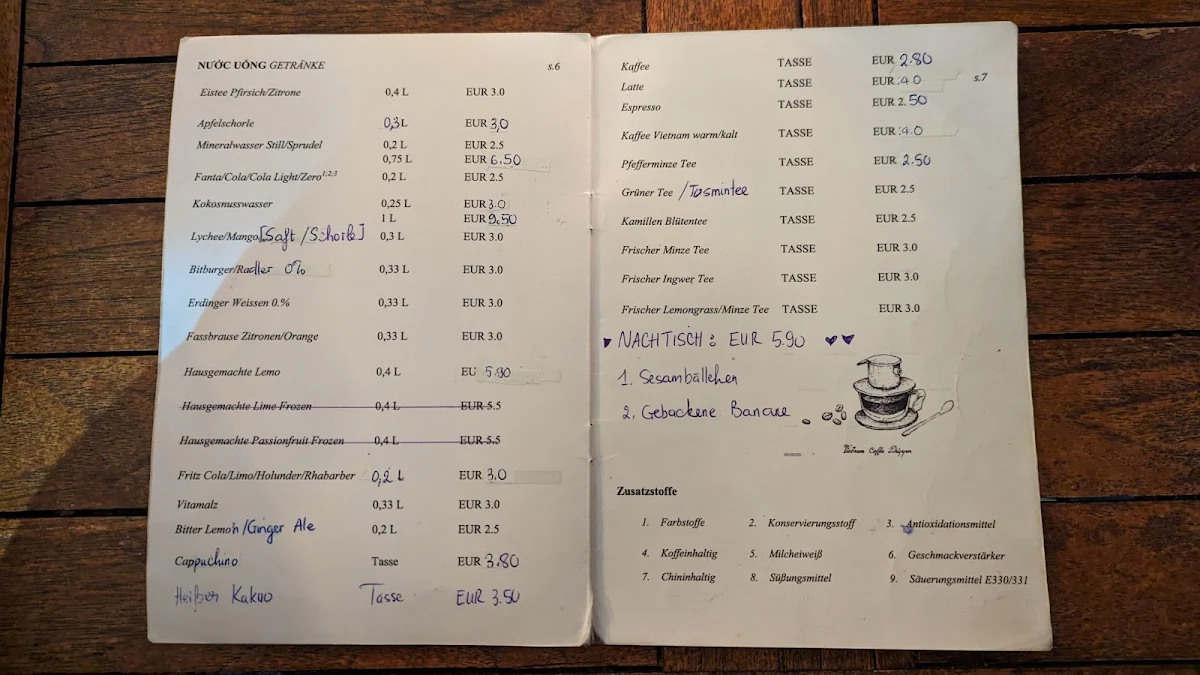 NƯỚC UỐNG GETRÄNKE s.6
Eistee Pfirsich/Zitrone 0,4 L EUR 3.0
Apfelschorle 0,3L EUR 3,0
Mineralwasser Still/Sprudel 0,2 L EUR 2.5
0,75 L EUR 6.50
Fanta/Cola/Cola Light/Zero1;2;3 0,2 L EUR 2.5
Kokosnusswasser 0,25 L EUR 3.0
1 L EUR 9.50
Lychee/Mango [Saft/Schorle] 0,3 L EUR 3.0
Bitburger/Radler 0% 0,33 L EUR 3.0
Erdinger Weissen 0.% 0,33 L EUR 3.0
Fassbrause Zitronen/Orange 0,33 L EUR 3.0
Hausgemachte Lemo 0,4 L EU 5.90
Hausgemachte Lime Frozen 0,4 L EUR 5.5
Hausgemachte Passionfruit Frozen 0,4 L EUR 5.5
Fritz Cola/Limo/Holunder/Rhabarber 0,2 L EUR 3.0
Vitamalz 0,33 L EUR 3.0
Bitter Lemon/Ginger Ale 0,2 L EUR 2.5
Cappuchino Tasse EUR 3.80
Heißer Kakao Tasse EUR 3.50
Kaffee TASSE EUR 2.80
Latte TASSE EUR 4.0 s.7
Espresso TASSE EUR 2.50
Kaffee Vietnam warm/kalt TASSE EUR 4.0
Pfefferminze Tee TASSE EUR 2.50
Grüner Tee /Jasmintee TASSE EUR 2.5
Kamillen Blütentee TASSE EUR 2.5
Frischer Minze Tee TASSE EUR 3.0
Frischer Ingwer Tee TASSE EUR 3.0
Frischer Lemongrass/Minze Tee TASSE EUR 3.0
NACHTISCH: EUR 5.90
1. Sesambällchen
2. Gebackene Banane
Vietnam Coffee Dripper
Zusatzstoffe
1. Farbstoffe 2. Konservierungsstoff 3. Antioxidationsmittel
4. Koffeinhaltig 5. Milcheiweiß 6. Geschmackverstärker
7. Chininhaltig 8. Süßungsmittel 9. Säuerungsmittel E330/331